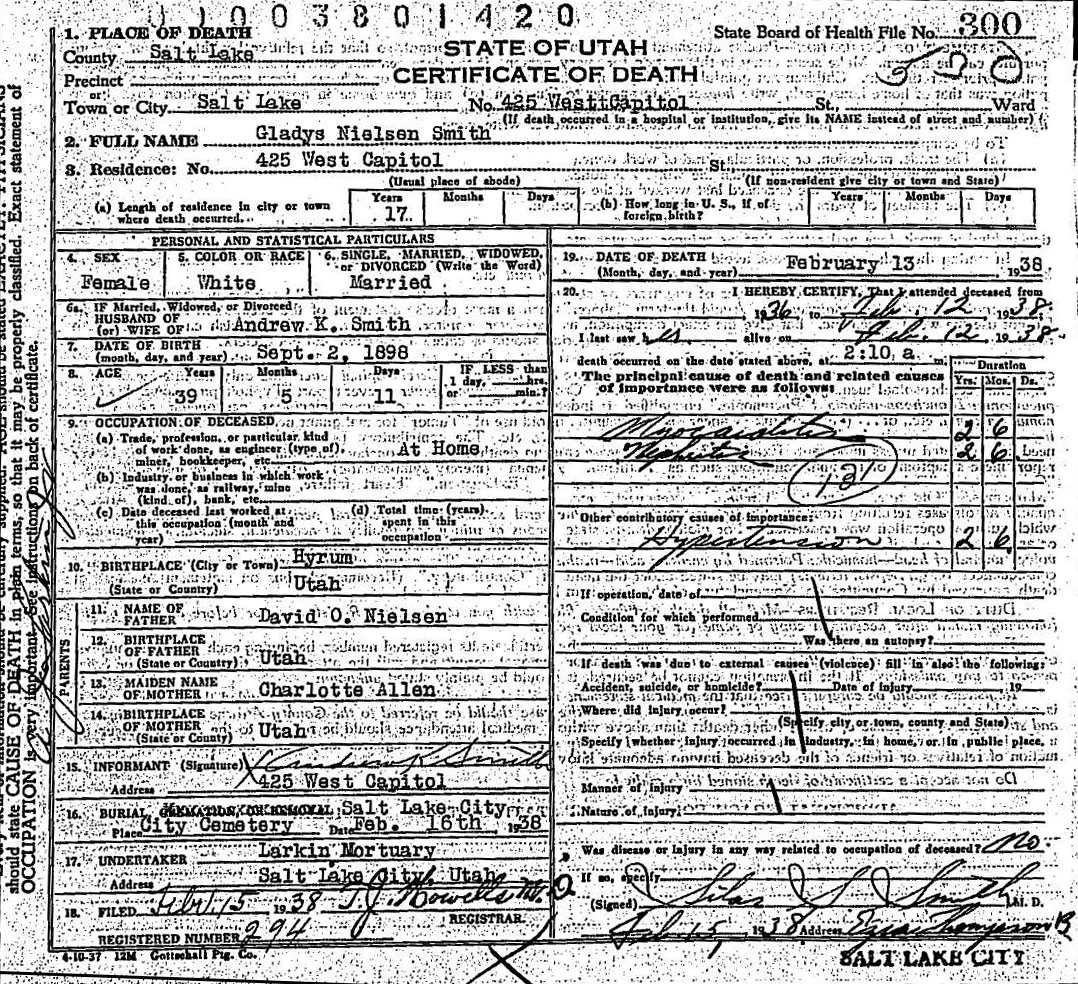 0 1 0 0 3 8 0 1 4 2 0
State Board of Health File No. 300
STATE OF UTAH
CERTIFICATE OF DEATH
1. PLACE OF DEATH
County Salt Lake
Precinct
or
Town or City Salt Lake No. 425 West Capitol St., Ward
(If death occurred in a hospital or institution, give its NAME instead of street and number)
2. FULL NAME Gladys Nielsen Smith
3. Residence: No. 425 West Capitol St.
(Usual place of abode) (If non-resident give city or town and State)
(a) Length of residence in city or town where death occurred. Years 17 Months Days
(b) How long in U. S., if of foreign birth? Years Months Days
PERSONAL AND STATISTICAL PARTICULARS
4. SEX Female
5. COLOR OR RACE White
6. SINGLE, MARRIED, WIDOWED, or DIVORCED (Write the Word) Married
6a. IF Married, Widowed, or Divorced
HUSBAND OF
(or) WIFE OF Andrew K. Smith
7. DATE OF BIRTH
(month, day, and year) Sept. 2, 1898
8. AGE Years 39 Months 5 Days 11 IF LESS than 1 day, hrs. or min.?
9. OCCUPATION OF DECEASED
(a) Trade, profession, or particular kind of work done, as engineer (type of), miner, bookkeeper, etc. At Home
(b) Industry or business in which work was done, as railway, mine (kind of), bank, etc.
(c) Date deceased last worked at this occupation (month and year)
(d) Total time (years) spent in this occupation
10. BIRTHPLACE (City or Town) Hyrum
(State or Country) Utah
PARENTS
11. NAME OF FATHER David O. Nielsen
12. BIRTHPLACE OF FATHER
(State or Country) Utah
13. MAIDEN NAME OF MOTHER Charlotte Allen
14. BIRTHPLACE OF MOTHER
(State or County) Utah
15. INFORMANT (Signature) Andrew K Smith
Address 425 West Capitol
16. BURIAL, CREMATION, OR REMOVAL Salt Lake City
Place City Cemetery Date Feb. 16th 1938
17. UNDERTAKER Larkin Mortuary
Address Salt Lake City, Utah
18. FILED Feb. 15 1938 T. J. Howells M. D.
REGISTRAR.
REGISTERED NUMBER 294
4-10-37 12M Gottschall Ptg. Co.
19. DATE OF DEATH
(Month, day, and year) February 13 1938
20. I HEREBY CERTIFY, That I attended deceased from
1936 to Feb. 12 1938
I last saw her alive on Feb. 12 1938
death occurred on the date stated above, at 2:10 a m.
The principal cause of death and related causes of importance were as follows:
Duration
Yrs. Mos. Ds.
Myocarditis 2 6
Nephritis 2 6
131
Other contributory causes of importance:
Hypertension 2 6
If operation, date of
Condition for which performed
Was there an autopsy?
If death was due to external causes (violence) fill in also the following:
Accident, suicide, or homicide? Date of injury 19
Where did injury occur?
(Specify city or town, county and State)
Specify whether injury occurred in industry, in home, or in public place.
Manner of injury
Nature of Injury:
Was disease or injury in any way related to occupation of deceased? No.
If so, specify
(Signed) Silas S Smith M. D.
Feb 15, 1938 Address
SALT LAKE CITY
should state CAUSE OF DEATH in plain terms, so that it may be properly classified. Exact statement of
OCCUPATION is very important. See instructions on back of certificate.